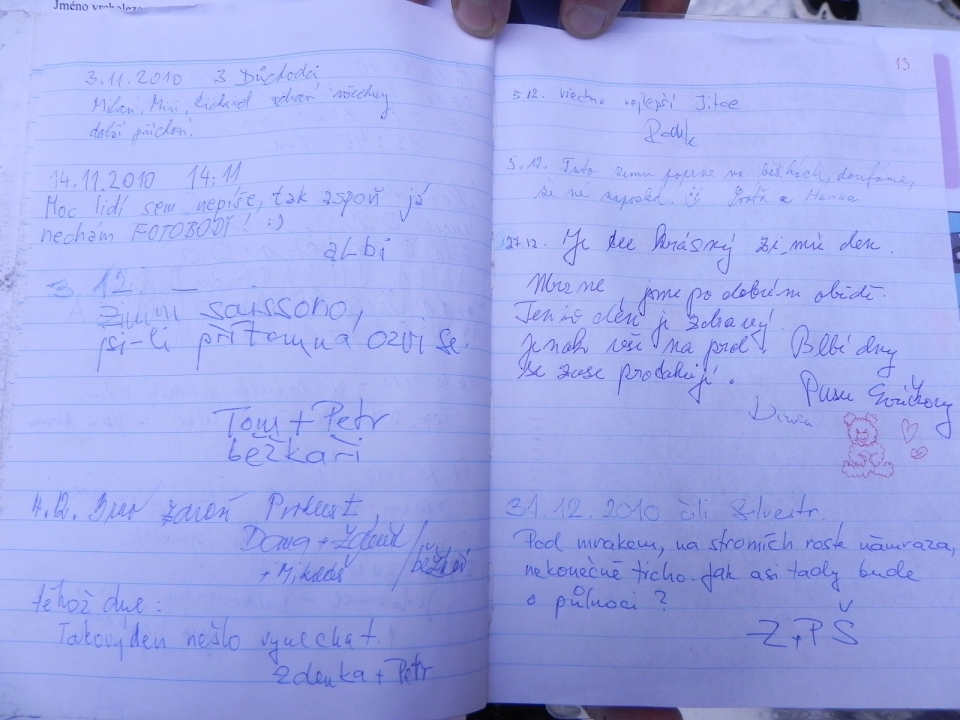 Jméno
3.11.2010 3 Důchodci
Milan, Mirí, Richard zdraví všechny
další příchozí.
14.11.2010 14:11
Moc lidí sem nepíše, tak aspoň já
nechám FOTOBODÍ! :)
aLbi
3.12.
Zimní saissono,
jsi-li přítomna ozvi se.
Tom + Petr
běžkaři
4.12. zdraví
+ Mikoláš
běžkaři
téhož dne:
Takový den nešlo vynechat.
Zdenka + Petr
13
5.12. všechno nejlepší Jitce
Radek
5.12. Tuto zimu poprvé na běžkách, doufáme,
že ne naposled. a Hanka
27.12. Je tu krásný zimní den.
Mrzne, jsme po dobrém obědě.
Tento den je zdravý.
Jinak vše na prd. Blbé dny
se zase prodlužují.
Pusu
31.12.2010 čili Silvestr.
Pod mrakem, na stromích roste námraza,
nekonečné ticho. Jak asi tady bude
o půlnoci?
Z+PŠ